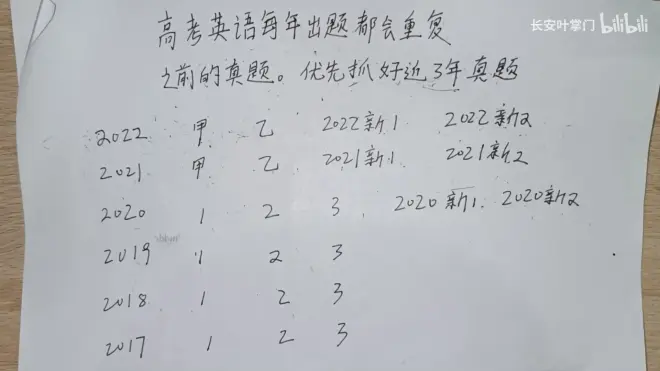 长安叶掌门 bilibili
高考英语每年出题都会重复
之前的真题。优先抓好近3年真题
2022 甲 乙 2022新1 2022新2
2021 甲 乙 2021新1 2021新2
2020 1 2 3 2020新1. 2020新2
2019 1 2 3
2018 1 2 3
2017 1 2 3